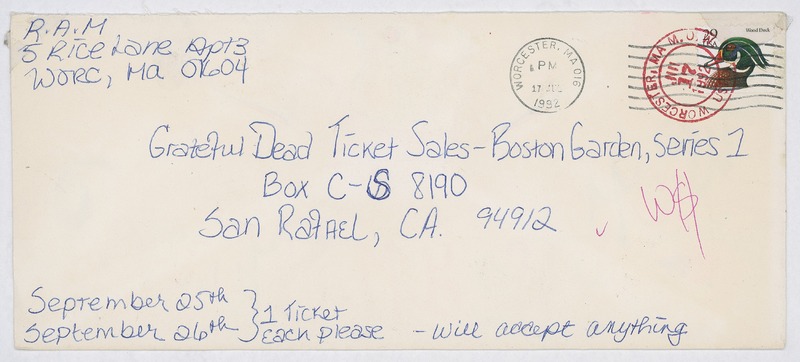 R.A.M
5 Rice Lane Apt 3
WORC, MA 01604
WORCESTER, MA 016
PM
1992
29
Wood Duck
WORCESTER, MA M.O.W.
12
Grateful Dead Ticket Sales - Boston Garden, Series 1
Box C-S 8190
San Rafael, CA. 94912
September 25th
September 26th
1 Ticket
each please
- will accept anything